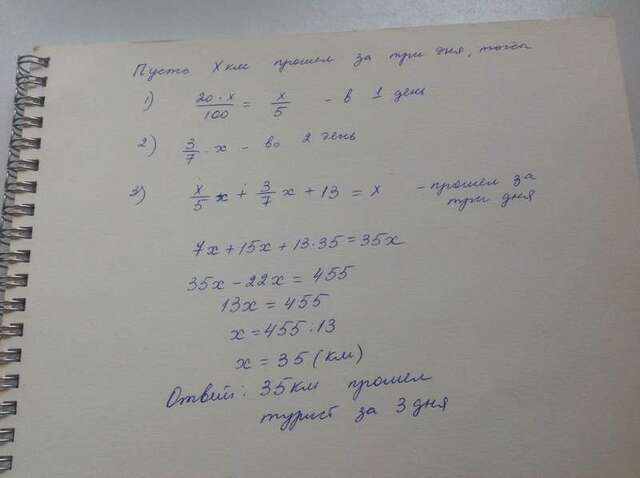 Пусть X км прошел за три дня, тогда
1) 20·x/100 = x/5 - в 1 день
2) 3/7·x - во 2 день
3) x/5 + 3/7 x + 13 = x - прошел за три дня
7x+15x+13·35=35x
35x-22x=455
13x=455
x=455:13
x=35(км)
Ответ: 35км прошел
турист за 3 дня